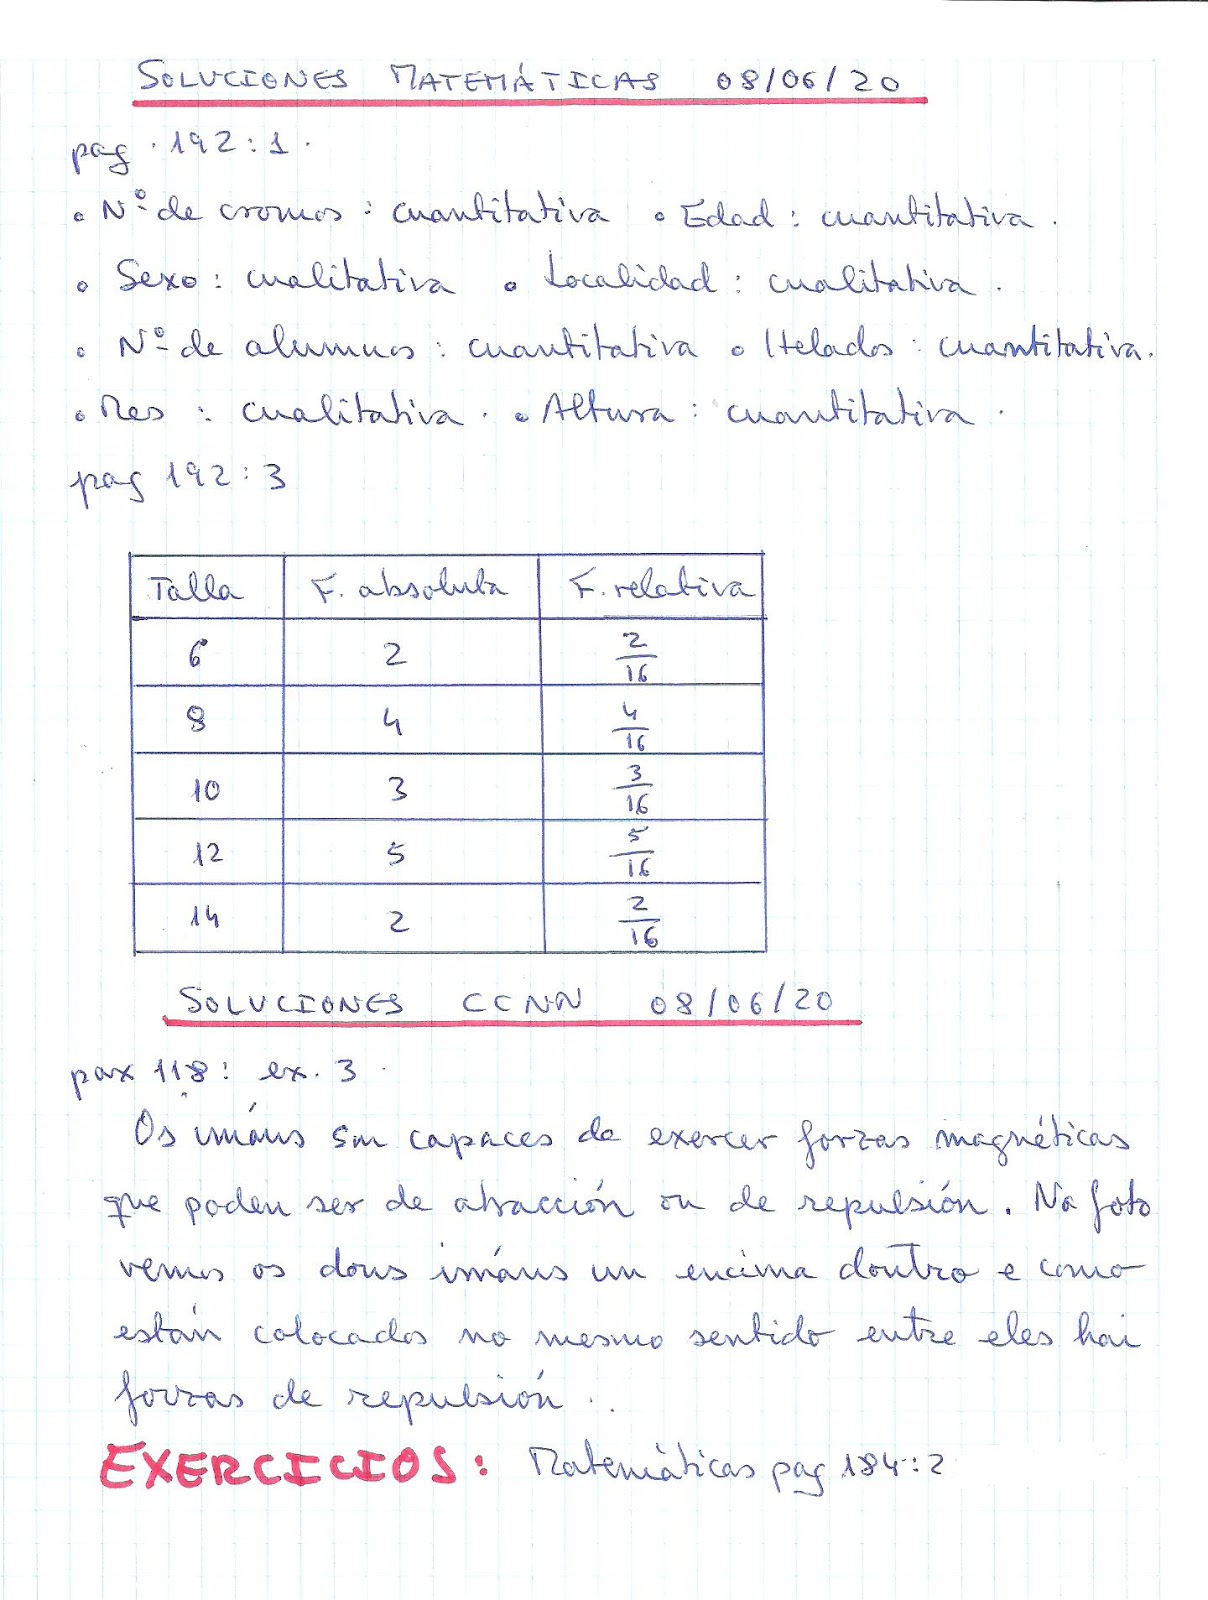 SOLUCIONES MATEMÁTICAS 08/06/20
pag. 192:1.
• Nº de cromos: cuantitativa • Edad: cuantitativa.
• Sexo: cualitativa • Localidad: cualitativa.
• Nº de alumnos: cuantitativa • Helados: cuantitativa.
• Mes: cualitativa. • Altura: cuantitativa.
pag 192:3
Talla F. absoluta F. relativa
6 2 2/16
8 4 4/16
10 3 3/16
12 5 5/16
14 2 2/16
SOLUCIONES CCNN 08/06/20
pax 118: ex. 3
Os imáns son capaces de exercer forzas magnéticas
que poden ser de atracción ou de repulsión. Na foto
vemos os dous imáns un encima doutro e como
están colocados no mesmo sentido entre eles hai
forzas de repulsión.
EXERCICIOS: Matemáticas pag 184:2